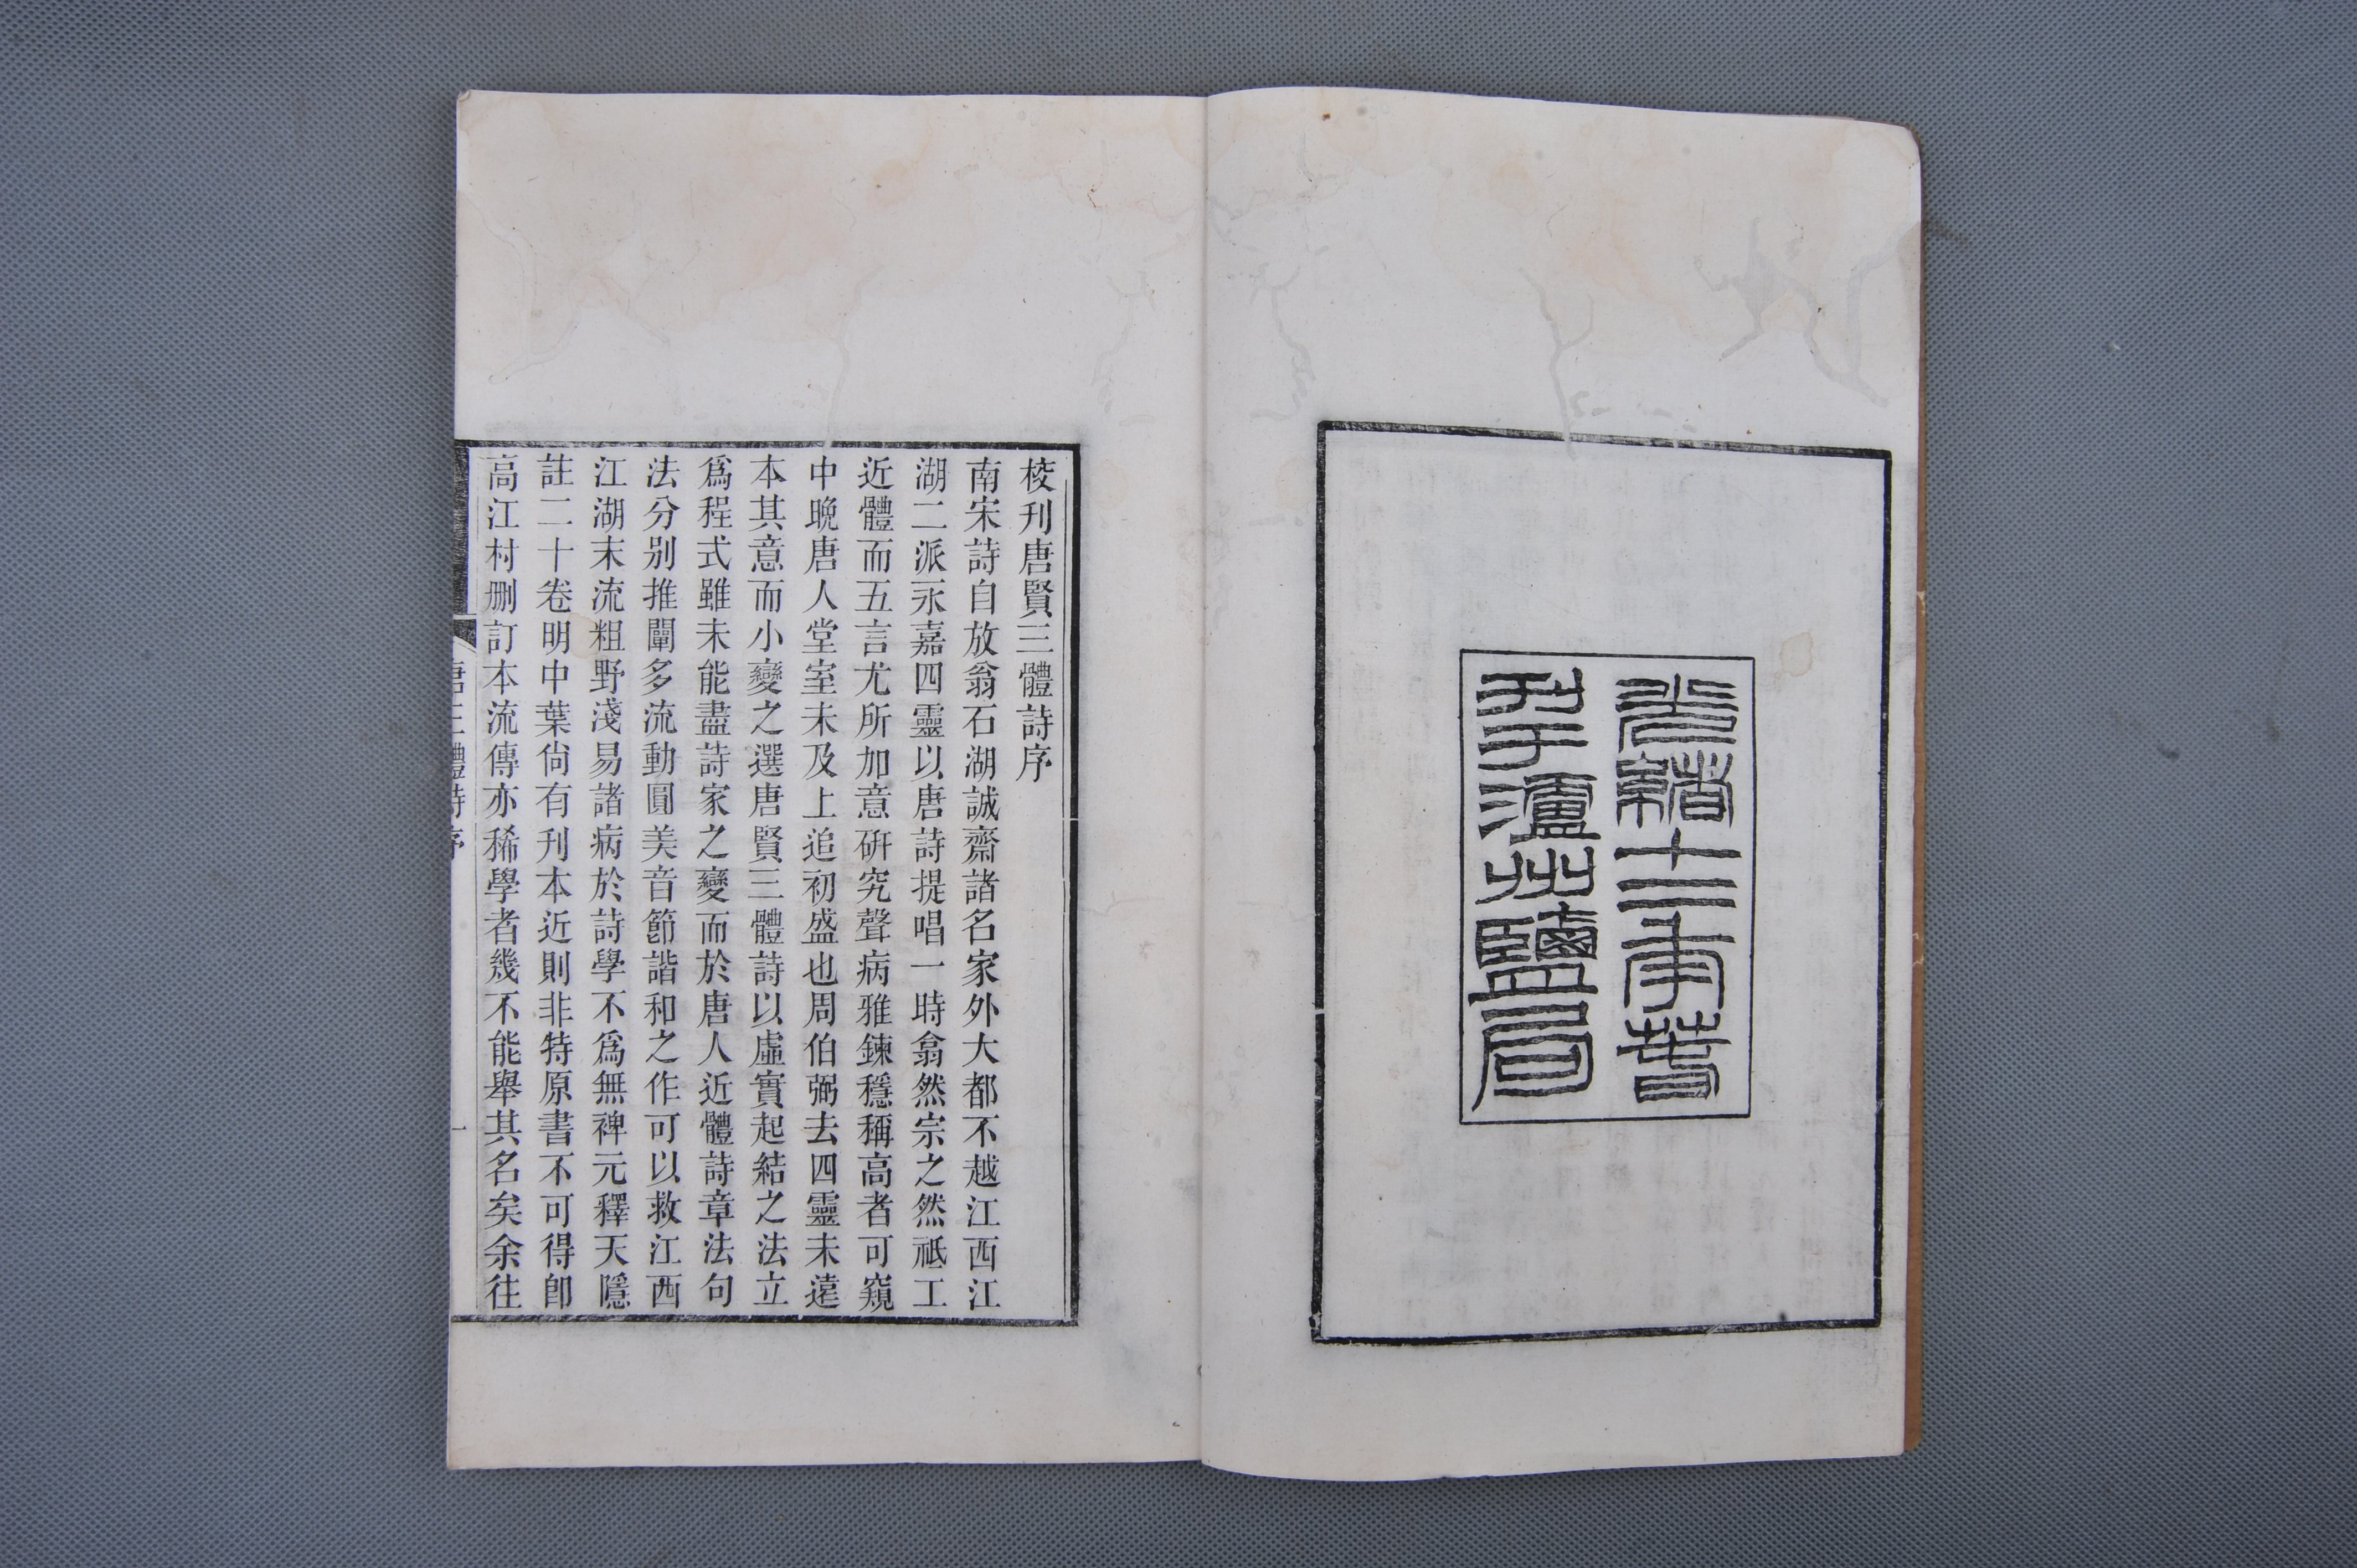 光緒十二年萅
刊于瀘州鹽局
校刊唐賢三體詩序
南宋詩自放翁石湖誠齋諸名家外大都不越江西江
湖二派永嘉四靈以唐詩提唱一時翕然宗之然祗工
近體而五言尤所加意研究聲病雅鍊穩稱高者可窺
中晚唐人堂室未及上追初盛也周伯弼去四靈未遠
本其意而小變之選唐賢三體詩以虛實起結之法立
爲程式雖未能盡詩家之變而於唐人近體詩章法句
法分别推闡多流動圓美音節諧和之作可以救江西
江湖末流粗野淺易諸病於詩學不爲無裨元釋天隱
註二十卷明中葉尙有刊本近則非特原書不可得卽
高江村删訂本流傳亦稀學者幾不能舉其名矣余往
唐三體詩序
一